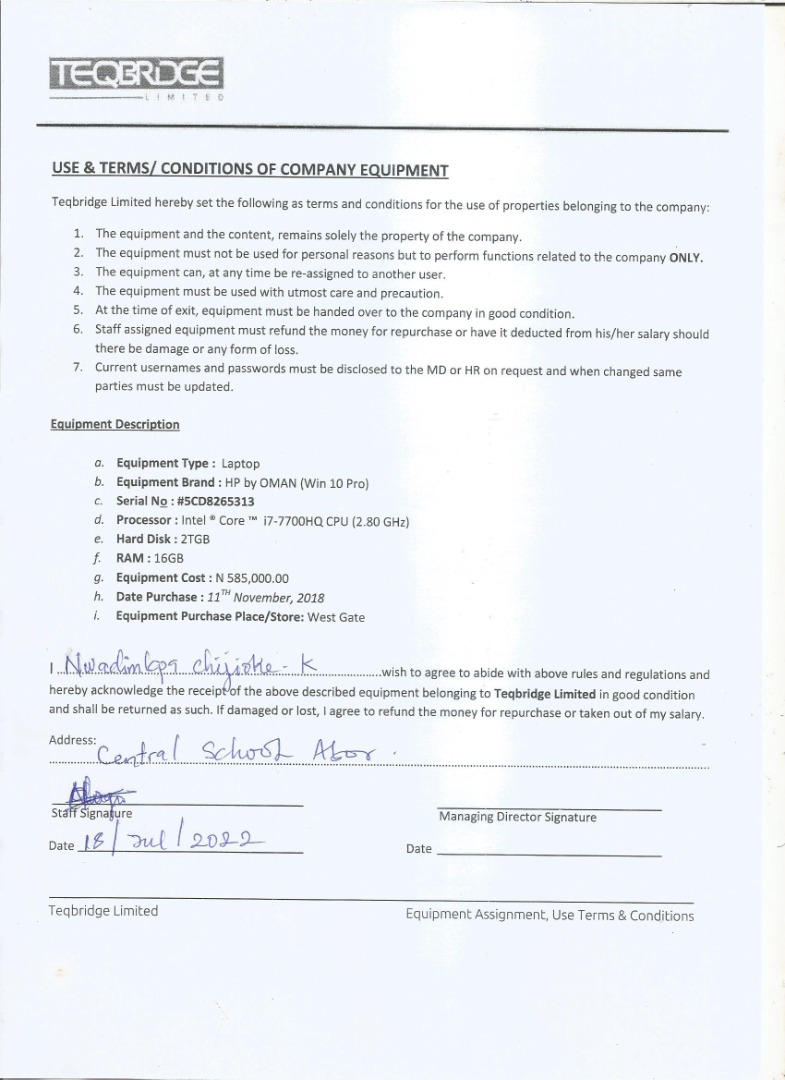 TEQBRIDGE
LIMITED
USE & TERMS/ CONDITIONS OF COMPANY EQUIPMENT
Teqbridge Limited hereby set the following as terms and conditions for the use of properties belonging to the company:
1. The equipment and the content, remains solely the property of the company.
2. The equipment must not be used for personal reasons but to perform functions related to the company ONLY.
3. The equipment can, at any time be re-assigned to another user.
4. The equipment must be used with utmost care and precaution.
5. At the time of exit, equipment must be handed over to the company in good condition.
6. Staff assigned equipment must refund the money for repurchase or have it deducted from his/her salary should
there be damage or any form of loss.
7. Current usernames and passwords must be disclosed to the MD or HR on request and when changed same
parties must be updated.
Equipment Description
a. Equipment Type : Laptop
b. Equipment Brand : HP by OMAN (Win 10 Pro)
c. Serial No : #5CD8265313
d. Processor : Intel ® Core ™ i7-7700HQ CPU (2.80 GHz)
e. Hard Disk : 2TGB
f. RAM : 16GB
g. Equipment Cost : N 585,000.00
h. Date Purchase : 11TH November, 2018
i. Equipment Purchase Place/Store: West Gate
I Nwadinkpa chijioke - K wish to agree to abide with above rules and regulations and
hereby acknowledge the receipt of the above described equipment belonging to Teqbridge Limited in good condition
and shall be returned as such. If damaged or lost, I agree to refund the money for repurchase or taken out of my salary.
Address: Central School Abor.
Staff Signature
Managing Director Signature
Date 18/Jul/2022
Date
Teqbridge Limited
Equipment Assignment, Use Terms & Conditions